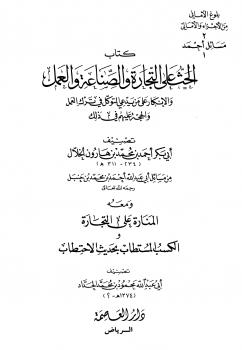 بلوغ الأماني
من الأجزاء والأمالي
٢
مسائل أحمد
١
كتاب
الحث على التجارة والصناعة والعمل
والإنكار على من يدعي التوكل في ترك العمل
والحجة عليهم في ذلك
تصنيف
أبي بكر أحمد بن محمد بن هارون الخلال
(٢٣٤ - ٣١١ هـ)
من مسائل أبي عبد الله أحمد بن محمد بن حنبل
رحمه الله تعالى
ومعه
المنارة على التجارة
و
الكسب المستطاب بحديث الاحتطاب
تصنيف
أبي عبد الله محمود بن محمد الحداد
(١٣٧٤ هـ - ؟)
دار العاصمة
الرياض